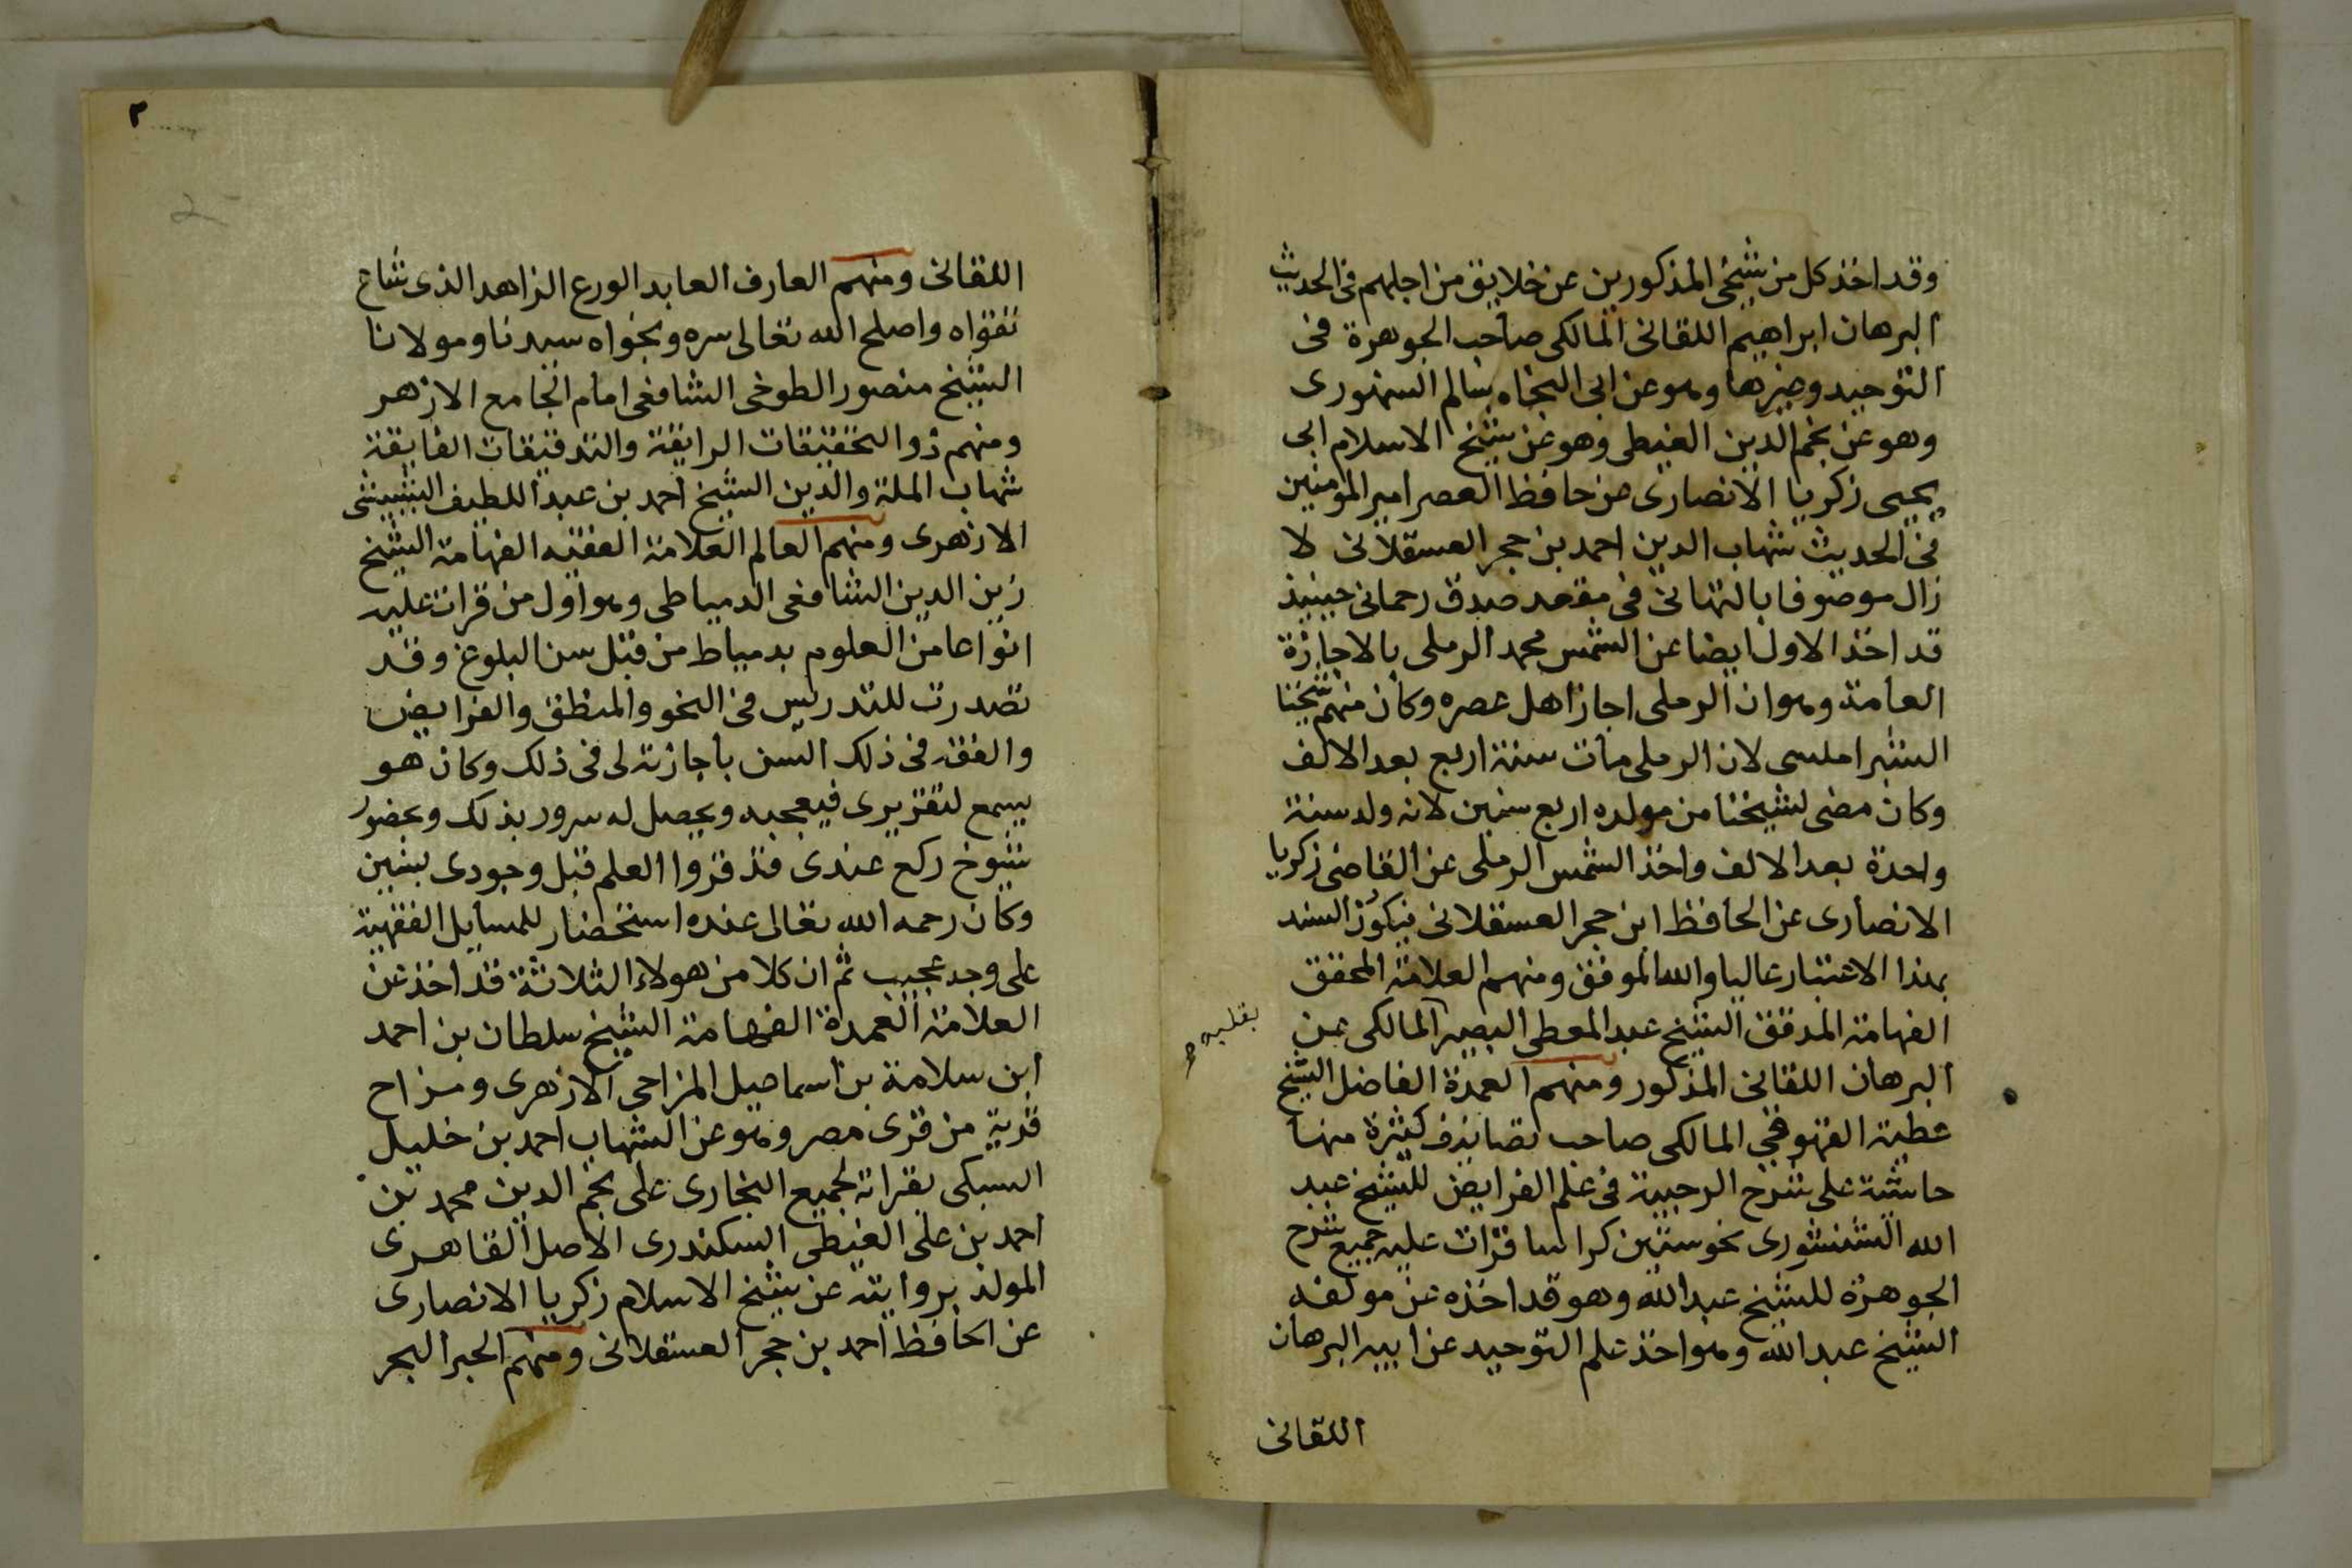 وقد اخذ كل من شيخى المذكورين عن خلايق من اجلهم فى الحديث
البرهان ابراهيم اللقانى المالكى صاحب الجوهرة فى
التوحيد وغيرها وهو عن ابى النجاه سالم السنهورى
وهو عن نجم الدين الغيطى وهو عن شيخ الاسلام ابى
يحيى زكريا الانصارى عن حافظ العصر امير المؤمنين
فى الحديث شهاب الدين احمد بن حجر العسقلانى لا
زال موصوفا بالتهانى فى مقعد صدق رحمانى حينيذ
قد اخذ الاول ايضا عن الشمس محمد الرملى بالاجازة
العامة وهو ان الرملى اجاز اهل عصره وكان منهم شيخنا
الشبراملسى لان الرملى مات سنة اربع بعد الالف
وكان مضى لشيخنا من مولده اربع سنين لانه ولد سنة
واحدة بعد الالف واخذ الشمس الرملى عن القاضى زكريا
الانصارى عن الحافظ ابن حجر العسقلانى فيكون السند
بهذا الاعتبار عاليا والله الموفق ومنهم العلامة المحقق
الفهامة المدقق الشيخ عبد المعطى البصير المالكى عن
بقلبه
البرهان اللقانى المذكور ومنهم العمدة الفاضل الشيخ
عطية القهوقى المالكى صاحب تصانيف كثيرة منها
حاشية على شرح الرحبية فى علم الفرايض للشيخ عبد
الله الشنشورى نحو ستين كراسا قرات عليه جميع شرح
الجوهرة للشيخ عبد الله وهو قد اخذه عن مولفه
الشيخ عبد الله وهو اخذ علم التوحيد عن ابيه البرهان
اللقانى
٢
2
اللقانى ومنهم العارف العابد الورع الزاهد الذى شاع
تقواه واصلح الله تعالى سره ونجواه سيدنا ومولانا
الشيخ منصور الطوخى الشافعى امام الجامع الازهر
ومنهم ذو التحقيقات الرايقة والتدقيقات الفايقة
شهاب الملة والدين الشيخ احمد بن عبد اللطيف البشبيشى
الازهرى ومنهم العالم العلامة الفقيه الفهامة الشيخ
زين الدين الشافعى الدمياطى وهو اول من قرات عليه
انواعا من العلوم بدمياط من قبل سن البلوغ وقد
تصدرت للتدريس فى النحو والمنطق والفرايض
والفقه فى ذلك السن باجازته لى فى ذلك وكان هو
يسمع لتقريرى فيعجبه ويحصل له سرور بذلك وبحضور
شيوخ ركع عندى قد قروا العلم قبل وجودى بسنين
وكان رحمه الله تعالى عنده استحضار للمسايل الفقهية
على وجه عجيب ثم ان كلا من هولاء الثلاثة قد اخذ عن
العلامة العمدة الفهامة الشيخ سلطان بن احمد
ابن سلامة بن اسماعيل المزاحى الازهرى ومزاح
قرية من قرى مصر وهو عن الشهاب احمد بن خليل
السبكى بقراته لجميع البخارى على نجم الدين محمد بن
احمد بن على الغيطى السكندرى الاصل القاهرى
المولد بروايته عن شيخ الاسلام زكريا الانصارى
عن الحافظ احمد بن حجر العسقلانى ومنهم الحبر البحر